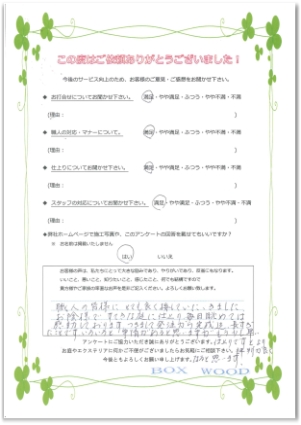 この度はご依頼ありがとうございました！
今後のサービス向上のため、お客様のご意見・ご感想をお聞かせ下さい。
◆ お打合せについてお聞かせ下さい。 満足・やや満足・ふつう・やや不満・不満
[理由： ]
◆ 職人の対応・マナーについて。 満足・やや満足・ふつう・やや不満・不満
[理由： ]
◆ 仕上りについてお聞かせ下さい。 満足・やや満足・ふつう・やや不満・不満
[理由： ]
◆ スタッフの対応についてお聞かせ下さい。 満足・やや満足・ふつう・やや不満・不満
[理由： ]
◆弊社ホームページで施工写真や、このアンケートの回答を載せてもいいですか？
※ お名前は掲載いたしません
はい いいえ
お客様の声は、私たちにとって大きな励みであり、やりがいであり、目標にもなります。
いいこと、悪いこと、知りたいこと、感じたこと、何でも結構ですので
職人の皆様に とても良く接していただきました
お陰様で すてきな庭に仕上り 毎日眺めては
アンケートにご協力いただき誠にありがとうございます。
お庭やエクステリアに何かご不便がございましたらお気軽にご相談下さい。
今後ともよろしくお願い申し上げます。
BOX WOOD